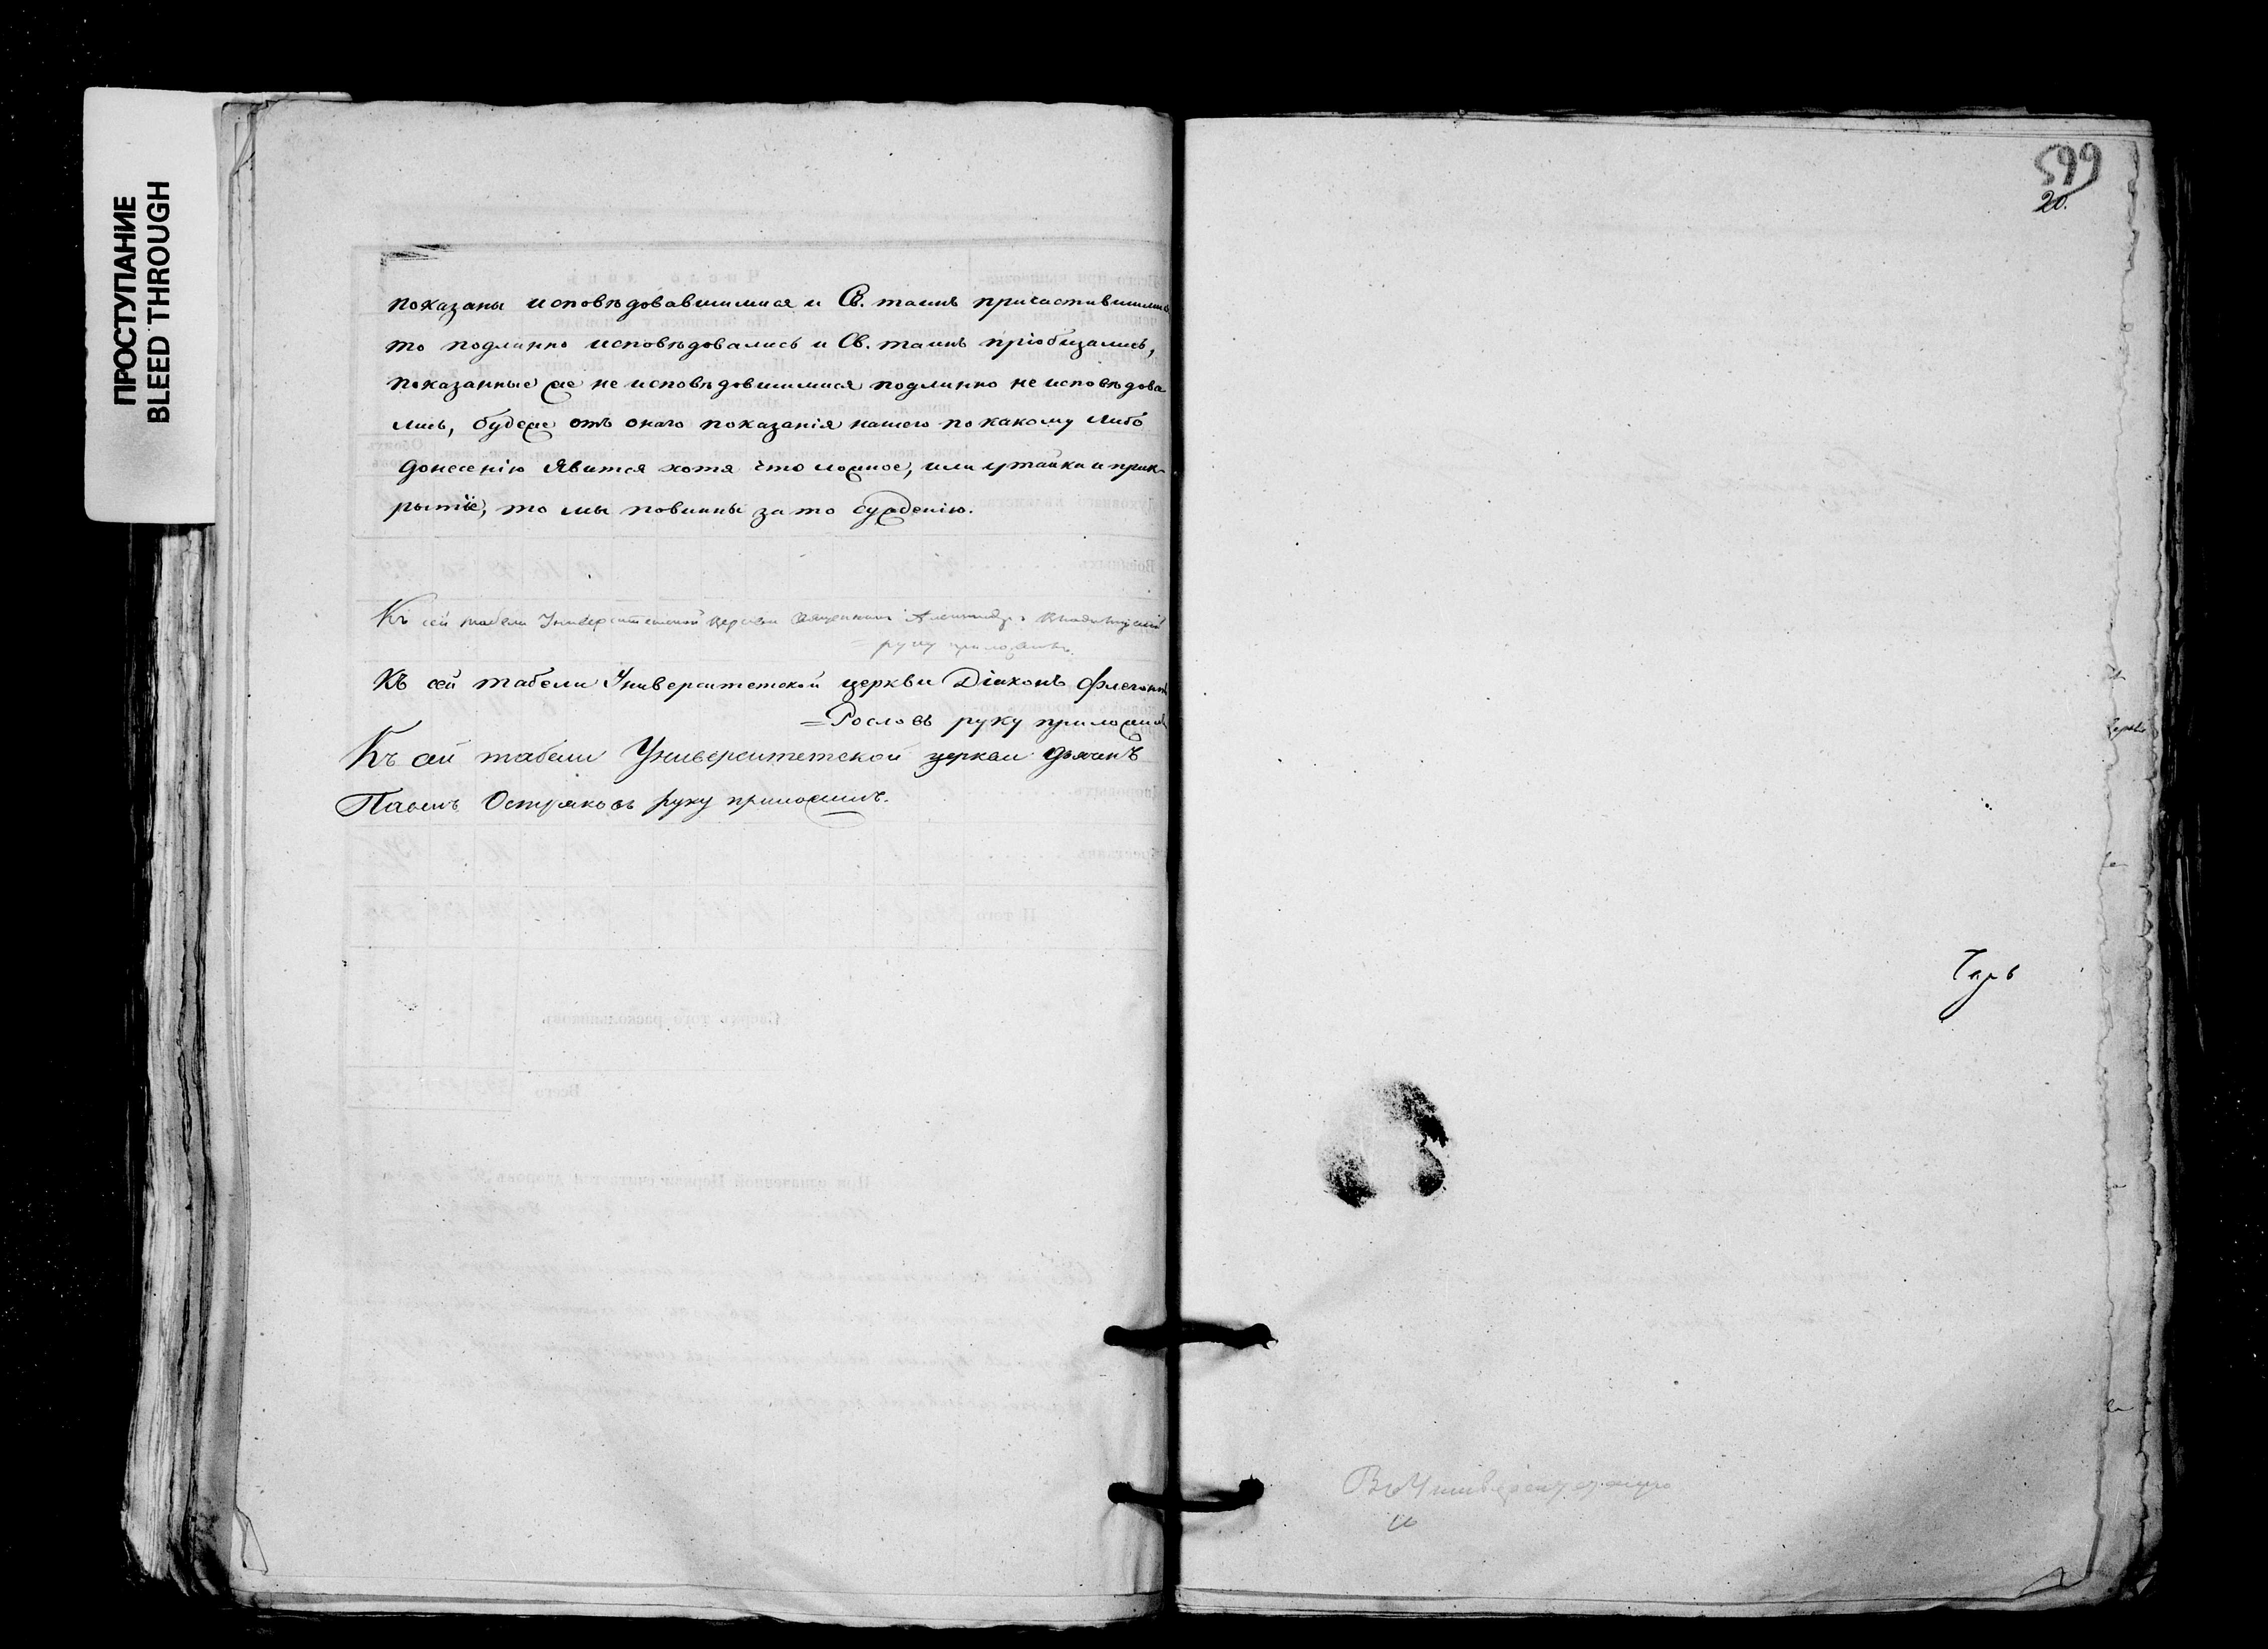 ПРОСТУПАНИЕ
BLEED THROUGH
показаны исповѣдовавшимися и Св. таинъ причастившимися
то подлинно исповѣдовались и Св. таинъ пріобщались,
показанные же не исповѣдовшимися подлинно не исповѣдова
лись, будеже отъ онаго показанія нашего по какому либо
донесенію явится хотя что ложное, или утайка и прик-
рытіе, то мы повинны за то сужденію.
Къ сей табели Университетской церкви Священникъ Александръ
= руку приложилъ.
Къ сей табели Университетской церкви Діаконъ Флегонтъ
=Рословъ руку приложилъ
Къ сей табели Университетской церкви дьячекъ
Павелъ Остряковъ руку приложилъ.
599
20.
Въ Университетскую